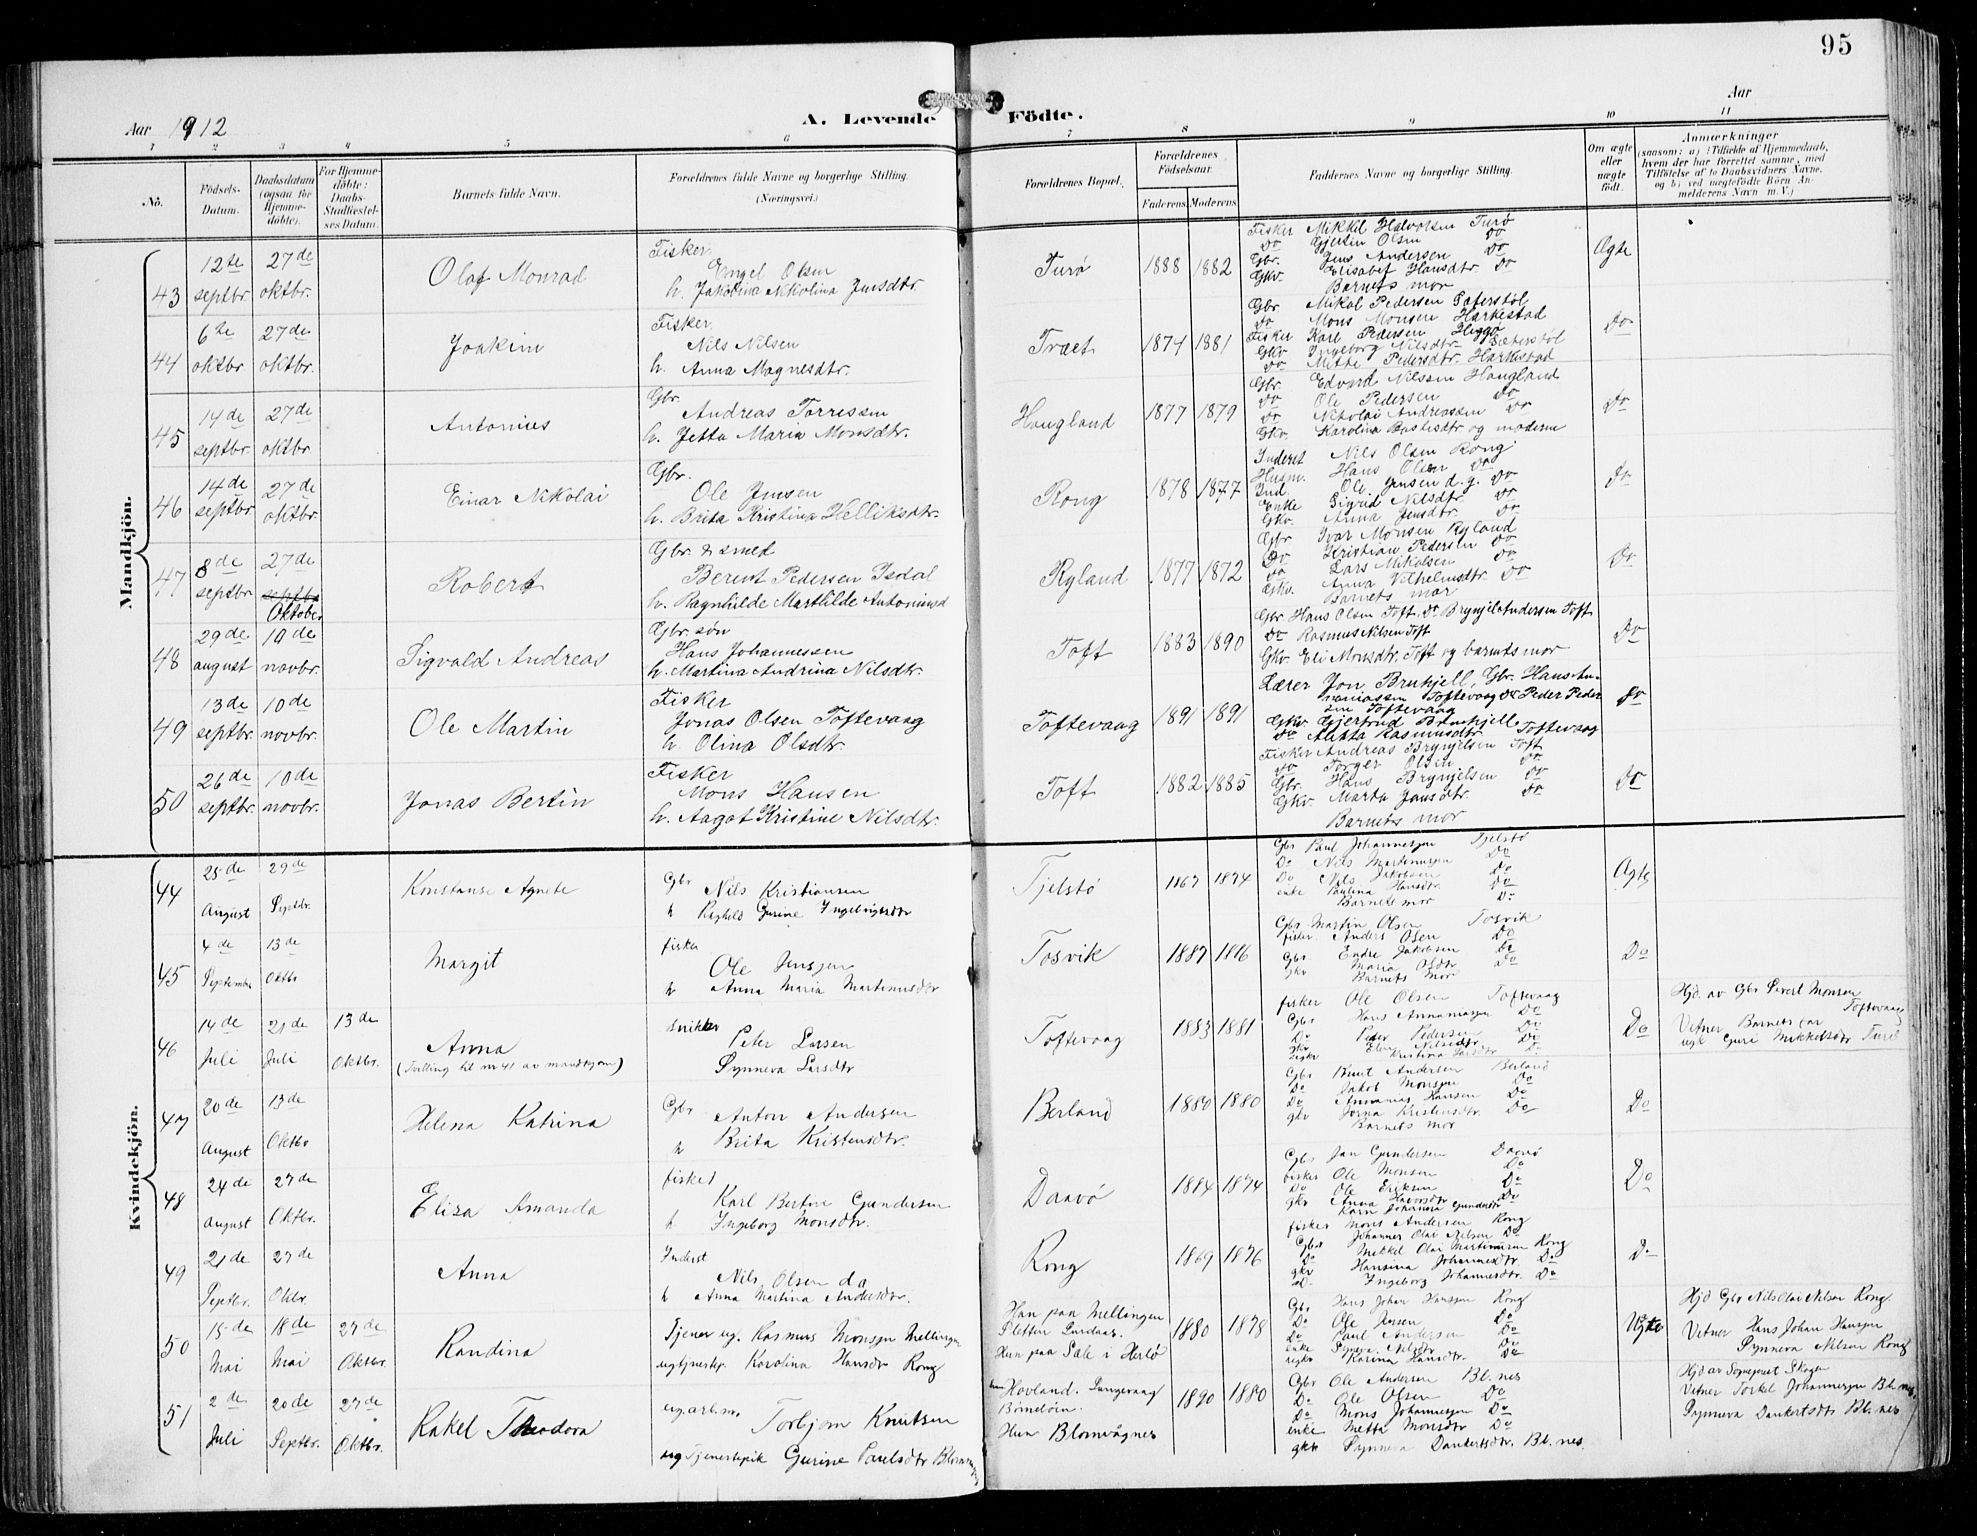 95
Aar 1912
A. Levende Födte.
Aar
1 2 3 4 5 6 7 8 9 10 11
No.
Födsels-Datum.
Daabsdatum (ogsaa för Hjemme-döbte).
For Hjemme-döbte: Daabs-Stadfæstel-ses Datum.
Barnets fulde Navn.
Forældrenes fulde Navne og borgerlige Stilling. (Næringsvei.)
Forældrenes Bopæl.
Forældrenes Födselsaar.
Faderens. Moderens.
Faddernes Navne og borgerlige Stilling.
Om ægte eller uægte født.
Anmærkninger
(saasom: a) i Tilfælde af Hjemmedaab, hvem der har forrettet samme, med Tilföielse af to Daabsvidners Navne, og b) ved uægtefödte Börn An-melderens Navn m. V.)
Mandkjön.
43
12te septbr.
27de oktbr.
Olaf Monrad
Fisker
Engel Olsen
h. Jakobina Nikolina Jensdtr
Turø
1888 1882
Fisker Mikkel Halvorsen Turø
Do Gjertin Olsen Do
Gbr. Jens Andersen Do
Gkv. Elisabet Hansdtr. Do
Barnets mor
Ægte
44
6te oktbr
27de oktbr.
Joakim
Fisker
Nils Nilsen
h. Anna Magnesdtr.
Træet
1874 1881
Gbr Mikal Pedersen Sæterstøl
Do Mons Monsen Harkestad
Fisker Karl Pedersen Heggø
Gkv Ingeborg Nilsdtr Sæterstøl
Do Mette Pedersdtr. Harkestad
Do
45
14de septbr.
27de oktbr
Antonius
Gbr.
Andreas Torressen
h. Jetta Maria Monsdtr.
Hougland
1877 1879
Gbr. Edvard Nilssen Hougland
Do Ole Pedersen Do
Do Nikolai Andreassen Do
Gkv. Karolina Bastesdtr og moderen
Do
46
14de septbr.
27de oktbr.
Einar Nikolai
Gbr.
Ole Jensen
h. Brita Kristina Helliksdtr.
Rong
1878 1877
Inderst Nils Olsen Rong
Husm. Hans Olsen Do
Ind. Ole Jensen d.y. Do
Enke Sigrid Nilsdtr Do
Gkv. Anna Jensdtr. Do
Do
47
8de septbr
27de septbr Oktober
Robert
Gbr & smed
Berent Pedersen Isdal
h. Ragnhilde Marthilde Antonisd
Ryland
1877 1872
Gbr Ivar Monsen Ryland
Do Kristian Pedersen Do
Do Lars Mikolsen Do
Gkv. Anna Vilhelmsdtr. Do
Barnets mor
Do
48
29de august
10de novbr.
Sigvald Andreas
Gbr. søn
Hans Johannessen
h. Martina Andrina Nilsdtr.
Toft
1883 1890
Gbr. Hans Olsen Toft. Do Brynjel Andersen Toft
Do Rasmus Nilsen Toft
Gkv Eli Monsdtr. Toft og barnets mor
Do
49
13de septbr.
10de novbr.
Ole Martin
Fisker
Jonas Olsen Toftevaag
h. Olina Olsdtr.
Toftevaag
1891 1891
Lærer Jon Brukjell, Gbr. Hans An-
naniassen Toftevaag Do Peder Peder
sen Toftevaag
Gkv. Gjertrud Brukjell
Do Aletta Rasmusdtr. Toftevaag
Do
50
26de septbr.
10de novbr.
Jonas Bertin
Fisker
Mons Hansen
h. Aagot Kristine Nilsdtr.
Toft
1882 1885
Fisker Andreas Brynjelsen Toft
Do Torger Olsen Do
Gbr. Hans Brynjelsen Do
Gkv. Marta Jensdtr. Do
Barnets mor
Do
Kvindekjön.
44
25de August
29de Septbr.
Konstanse Agnete
Gbr Nils Kristiansen
h Raghild Gurine Ingebrigtsdtr
Tjelstø
1867 1874
Gbr Paul Johannesjen Tjelstø
Do Nils Martinusjen Do
Do Nils Jakobsen Do
enke Paulina Hansdtr. Do
Barnets mor Do
Ægte
45
4de September
13de Oktbr
Margit
fisker
Ole Jensjen
h Anna Maria Martinusdtr
Tosvik
1887 1886
Gbr Martin Olsen Tosvik
fisker Anders Olsen Do
Gbr Endre Jakobsen Do
gkv Maria Olsdtr Do
Barnets Mor
Do
46
14de Juli
21de Juli
13de Oktbr.
Anna
(Tvilling til nr 41 av mandkjøn)
Peter Larsen
Synneva Larsdtr
Toftevaag
1883 1881
fisker Ole Olsen Toftevaag
Gbr Hans Annaniasjen Do
Do Peder Pedersen Do
gkv Elen Nilsdtr Do
Kristina Larsdtr Do
Do
Hjd. av Gbr Sivert Monsen Toftevaag
Vitner Barnets far
ugk Guri Mikkelsdtr Turø
47
20de August
13de Oktbr
Helena Katrina
Gbr Anton Andersen
h Brita Kristensdtr.
Berland
1880 1880
Gbr Knut Andersen Berland
Do Jakob Monsjen Do
Do Annanias Hansen Do
gkv Jorna Kristensdtr. Do
Barnets mor
Do
48
24de August
27de Oktbr.
Eliza Amanda
fisker
Karl Bertin Gundersen
h Ingeborg Monsdtr.
Daavø
1884 1874
Gbr Jan Gundersen Daavø
fisker Ole Monsen Do
Do Ole Eriksen Do
gkv Anna Havorsdtr Do
Karn Johanna Gundersdtr
Do
49
21de Septbr.
27de Oktbr.
Anna
Inderst
Nils Olsen da
h Anna Martina Andersdtr.
Rong
1869 1876
fisker Mons Andersen Rong
Gbr Johannes Olai Nilsen Do
Do Mikkel Olai Martinusen Rong
gkv Hansina Johannesdtr. Do
Do Ingeborg Johannesdtr. Do
Do
50
15de Mai
18de Mai
27de Oktbr.
Randina
Tjener ug. Rasmus Monsjen Mellingen
ug tjenestep. Karolina Hansdtr Rong
Han paa Mellingen
Hun paa Sæle i Herlø
1880 1878
Gbr Hans Johan Hansjen Rong
Do Ole Jensen Do
Do Paul Andersen Do
enke Synneva Nilsdtr Do
ugkv Karina Hansdtr. Do
Uægte
Hjd Gbr Nils Olai Nilsen Rong
Vitner Hans Johan Hansjen
Synneva Nilsen Rong
51
2de Juli
20de Septbr.
27de Oktbr.
Rakel Theodora
ug. arb.m. Torbjørn Knutsen
ug Tjenestepik Gurine Paulsdtr Blomvaagnes
Hovland. Langevaag
Hun Blomvågnes
1890 1880
Gbr Ole Andersen Bl.nes
Do Ole Olsen Do
Do Mons Johannesjen Do
enke Metta Monsdtr Do
gkv Synneva Dankertsdtr. Bl.nes
Hjd av Sogneprest Skagen
Vitner Torkel Johannesjen Bl.nes,
Synneva Dankertsdtr Bl.nes